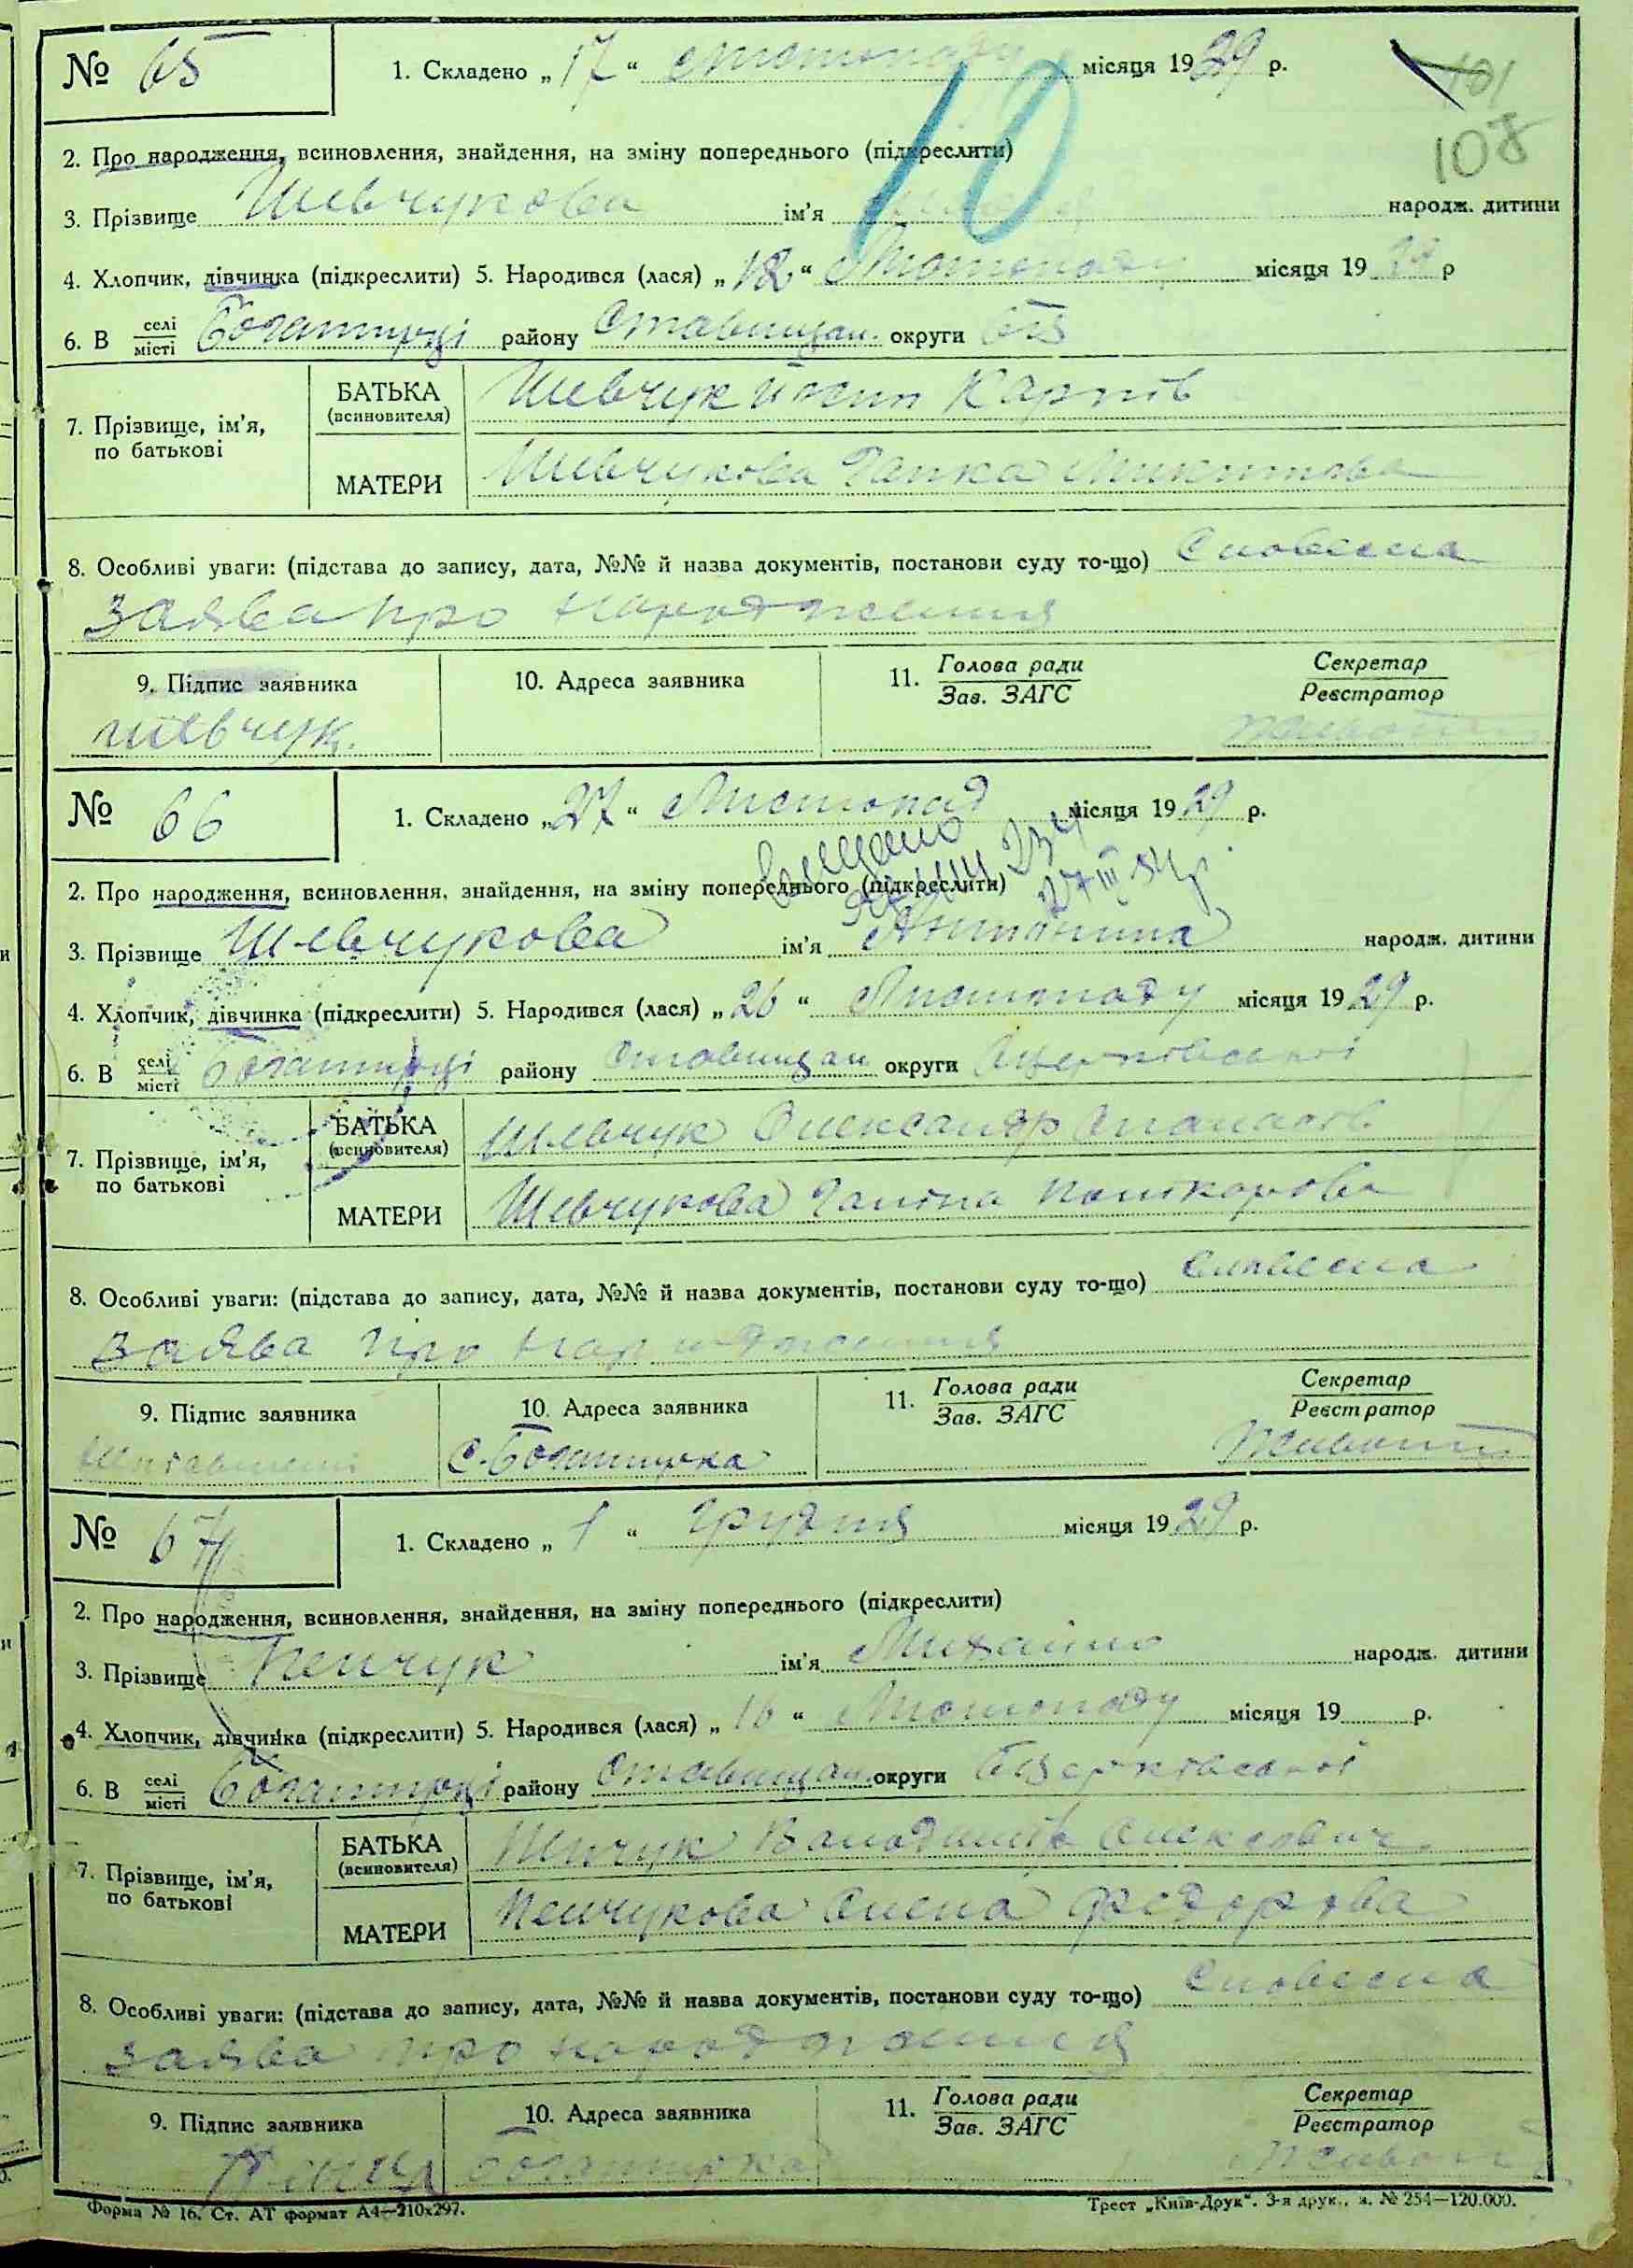 № 65 1. Складено „17“ Листопаду місяця 1929 р.
101
108
10
2. Про народження, всиновлення, знайдення, на зміну попереднього (підкреслити)
3. Прізвище Шевчукова ім'я народж. дитини
4. Хлопчик, дівчинка (підкреслити) 5. Народився (лася) „12“ Листопаду місяця 1929 р
6. В селі місті Богатирці району Ставищан. округи БЦ
7. Прізвище, ім'я, по батькові
БАТЬКА (всиновителя) Шевчук Йосип Карпів
МАТЕРИ Шевчукова Гапка Микитова
8. Особливі уваги: (підстава до запису, дата, №№ й назва документів, постанови суду то-що) Словесна
заява про народження
9. Підпис заявника 10. Адреса заявника 11. Голова ради Зав. ЗАГС Секретар Реєстратор
Шевчук.
№ 66 1. Складено „27“ Листопад місяця 1929 р.
27 III 54 р.
2. Про народження, всиновлення, знайдення, на зміну попереднього (підкреслити)
3. Прізвище Шевчукова ім'я Антоніна народж. дитини
4. Хлопчик, дівчинка (підкреслити) 5. Народився (лася) „26“ Листопаду місяця 1929 р.
6. В селі місті Богатирці району Ставищан округи Бцерківської
7. Прізвище, ім'я, по батькові
БАТЬКА (всиновителя) Шевчук Олександр
МАТЕРИ Шевчукова Ганна
8. Особливі уваги: (підстава до запису, дата, №№ й назва документів, постанови суду то-що) Словесна
заява про народження
9. Підпис заявника 10. Адреса заявника 11. Голова ради Зав. ЗАГС Секретар Реєстратор
с. Богатирка
№ 67 1. Складено „1“ Грудня місяця 1929 р.
2. Про народження, всиновлення, знайдення, на зміну попереднього (підкреслити)
3. Прізвище Пенчук ім'я Михайло народж. дитини
4. Хлопчик, дівчинка (підкреслити) 5. Народився (лася) „16“ Листопаду місяця 19 р.
6. В селі місті Богатирці району Ставищан. округи БЦерківської
7. Прізвище, ім'я, по батькові
БАТЬКА (всиновителя) Пенчук Олексович
МАТЕРИ Пенчукова Олена Федорова
8. Особливі уваги: (підстава до запису, дата, №№ й назва документів, постанови суду то-що) Словесна
заява про народження
9. Підпис заявника 10. Адреса заявника 11. Голова ради Зав. ЗАГС Секретар Реєстратор
Богатирка
Форма № 16. Ст. АТ формат А4—210x297. Трест „Київ-Друк“. 3-я друк., з. № 254—120.000.